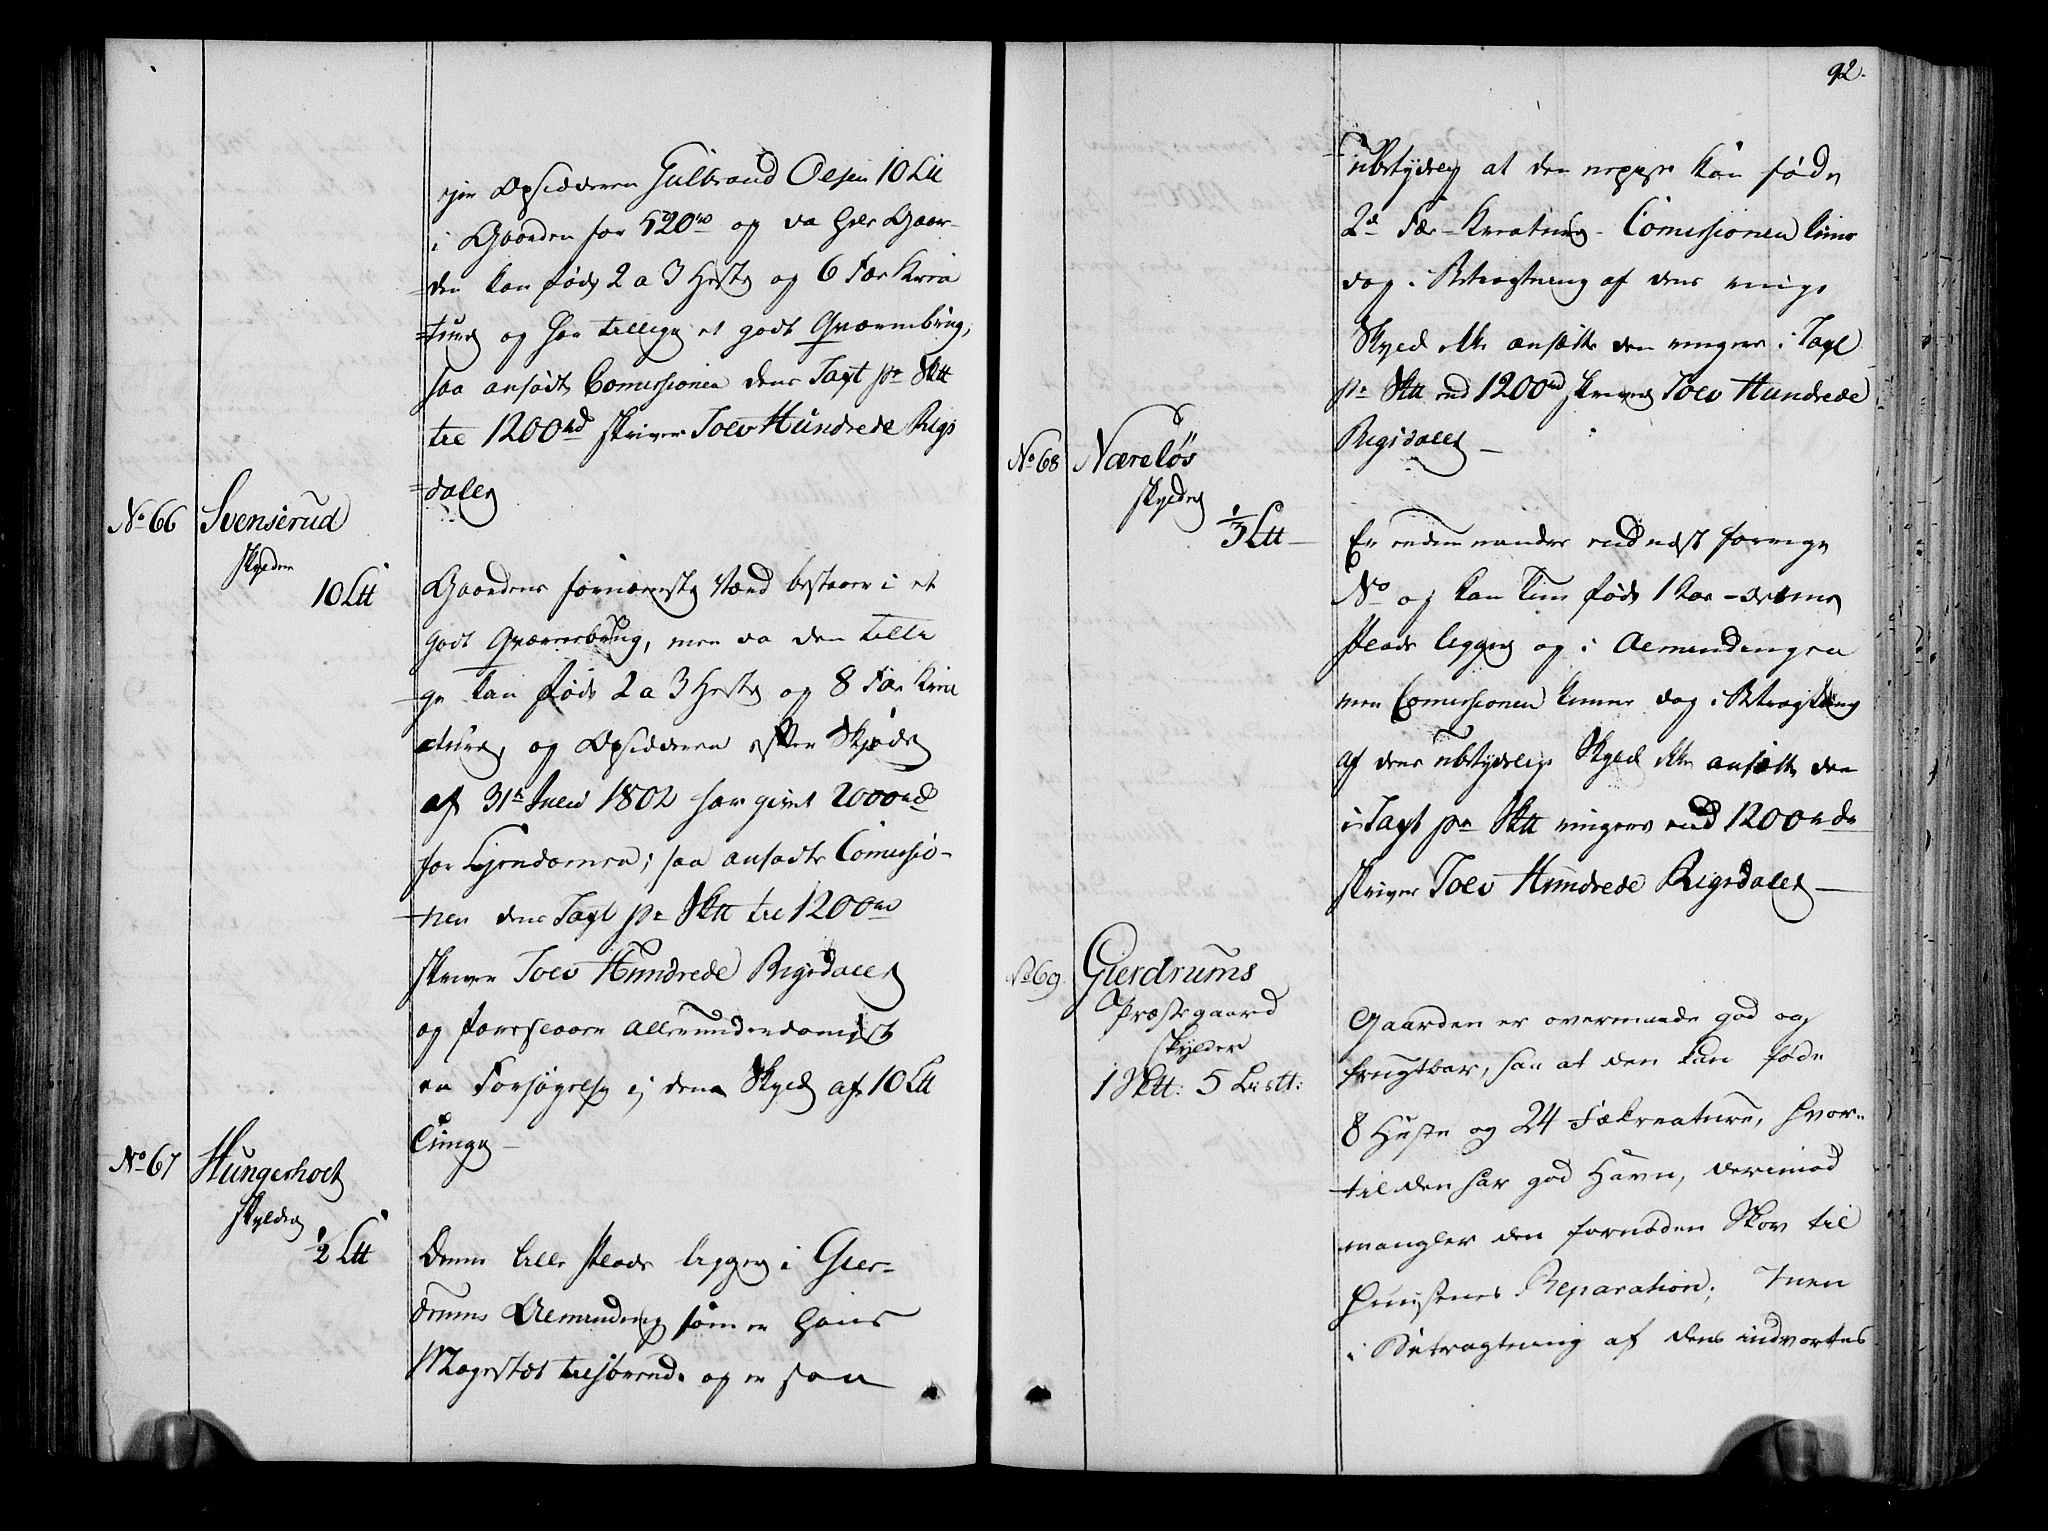 Opsidderen Gulbrand Olsen 10 Ltt
i Gaarden for 520rd og da hele Gaar-
den kan føde 2 a 3 Heste og 6 Fæe Krea
turer og har tillige et godt Qværnbrug,
saa ansadte Comissionen dens Taxt pr Sktt
til 1200rd skriver Tolv Hundrede Rigs
daler
No 66 Svenserud
skylder
10 Ltt
Gaardens fornæmste Værd bestaaer i et
godt Qværnebrug, men da den tilli
ge kan føde 2 a 3 Heste og 8 Fæe Krea
turer, og Opsidderen efter Skjøde
af 31te Julii 1802 har givet 2000rd
for Ejendomen; saa ansadte Comissio-
nen dens Taxt pr Sktt til 1200rd
skriver Tolv Hundrede Rigsdaler
og foreslaaer allerunderdanigst
en Forhøyelse i dens Skyld af 10 Ltt
Tunge
No 67 Hungerholt
skylder
1/2 Ltt
Denne lille Plads ligger i Gier-
drums Almending som er Hans
Majestæt tilhørende og er saa
92.
ubetydelig at den neppe kan føde
2de Fæe-Kreature. Comissionen kunde
dog i Betragtning af dens ringe
Skyld ikke ansætte den ringere i Taxt
pr Sktt end 1200rd skriver Tolv Hundrede
Rigsdaler
No 68 Næreløs
skylder
1/3 Ltt
Er endnu mindre end næst forrige
No og kan kun føde 1 Koe - denne
Plads ligger og i Almendingen
men Comissionen kunne dog i Betragtning
af dens ubetydelige Skyld ikke ansætte den
i Taxt pr Sktt ringere end 1200rd
skriver Tolv Hundrede Rigsdaler
No 69 Gierdrums
Præstegaard
skylder
1 Sktt: 5 Listt:
Gaarden er overmaade god og
frugtbar, saa at den kan føde
8 Heste og 24 Fækreature, hvor-
til den har god Havn, derimod
mangler den fornøden Skov til
Huusenes Reparation; Men
i Betragtning af dens indvortes